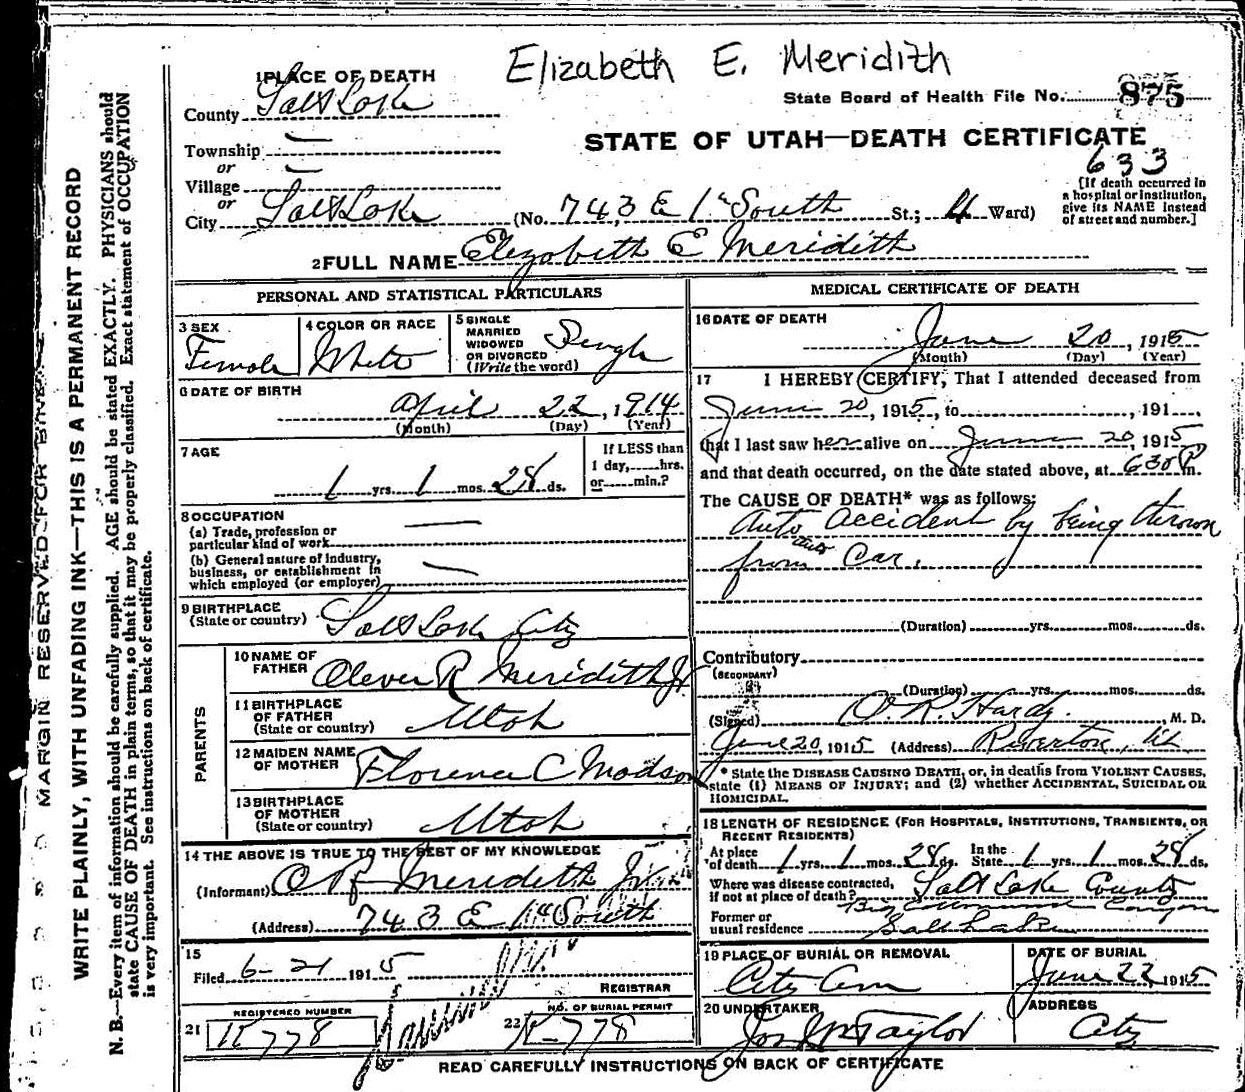 Elizabeth E. Meridith
1 PLACE OF DEATH
County Salt Lake
State Board of Health File No. 875
STATE OF UTAH—DEATH CERTIFICATE
633
Township —
or
Village —
or
City Salt Lake (No. 743 E 1st South St.; 4 Ward)
[If death occurred in
a hospital or institution,
give its NAME instead
of street and number.]
2 FULL NAME Elizabeth E Meridith
PERSONAL AND STATISTICAL PARTICULARS
3 SEX
Female
4 COLOR OR RACE
White
5 SINGLE
MARRIED
WIDOWED
OR DIVORCED
(Write the word)
Single
6 DATE OF BIRTH
April 22, 1914
(Month) (Day) (Year)
7 AGE
1 yrs. 1 mos. 28 ds.
If LESS than
1 day,......hrs.
or......min.?
8 OCCUPATION
(a) Trade, profession or
particular kind of work —
(b) General nature of industry,
business, or establishment in
which employed (or employer) —
9 BIRTHPLACE
(State or country) Salt Lake City
PARENTS
10 NAME OF
FATHER Olever R Meridith Jr
11 BIRTHPLACE
OF FATHER
(State or country) Utah
12 MAIDEN NAME
OF MOTHER Florence C Madson
13 BIRTHPLACE
OF MOTHER
(State or country) Utah
14 THE ABOVE IS TRUE TO THE BEST OF MY KNOWLEDGE
(Informant) O R Meredith Jr
(Address) 743 E 1st South
15
Filed 6-21 1915
REGISTRAR
21 REGISTERED NUMBER
K 778
22 NO. OF BURIAL PERMIT
K-778
MEDICAL CERTIFICATE OF DEATH
16 DATE OF DEATH
June 20, 1915
(Month) (Day) (Year)
17 I HEREBY CERTIFY, That I attended deceased from
June 20, 1915, to........, 191....,
that I last saw her alive on June 20, 1915
and that death occurred, on the date stated above, at 630 P m.
The CAUSE OF DEATH* was as follows:
Auto accident by being thrown
from auto Car.
(Duration) yrs. mos. ds.
Contributory
(SECONDARY)
(Duration) yrs. mos. ds.
(Signed) O. R. Hardy. M. D.
June 20, 1915 (Address) Riverton, Ut
* State the DISEASE CAUSING DEATH, or, in deaths from VIOLENT CAUSES,
state (1) MEANS OF INJURY; and (2) whether ACCIDENTAL, SUICIDAL OR
HOMICIDAL.
18 LENGTH OF RESIDENCE (FOR HOSPITALS, INSTITUTIONS, TRANSIENTS, OR
RECENT RESIDENTS)
At place
of death 1 yrs. 1 mos. 28 ds. In the
State 1 yrs. 1 mos. 28 ds.
Where was disease contracted,
if not at place of death? Salt Lake County
Big Canyon
Former or
usual residence Salt Lake
19 PLACE OF BURIAL OR REMOVAL
City Cem
DATE OF BURIAL
June 22, 1915
20 UNDERTAKER
Jos Wm Taylor
ADDRESS
City
READ CAREFULLY INSTRUCTIONS ON BACK OF CERTIFICATE
MARGIN RESERVED FOR BIND
WRITE PLAINLY, WITH UNFADING INK—THIS IS A PERMANENT RECORD
N. B.—Every item of information should be carefully supplied. AGE should be stated EXACTLY. PHYSICIANS should
state CAUSE OF DEATH in plain terms, so that it may be properly classified. Exact statement of OCCUPATION
is very important. See instructions on back of certificate.